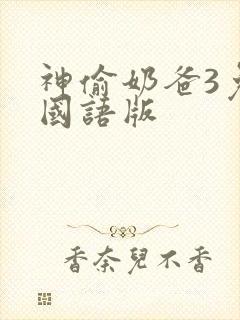 神偷奶爸3
國語版
香奈兒不香